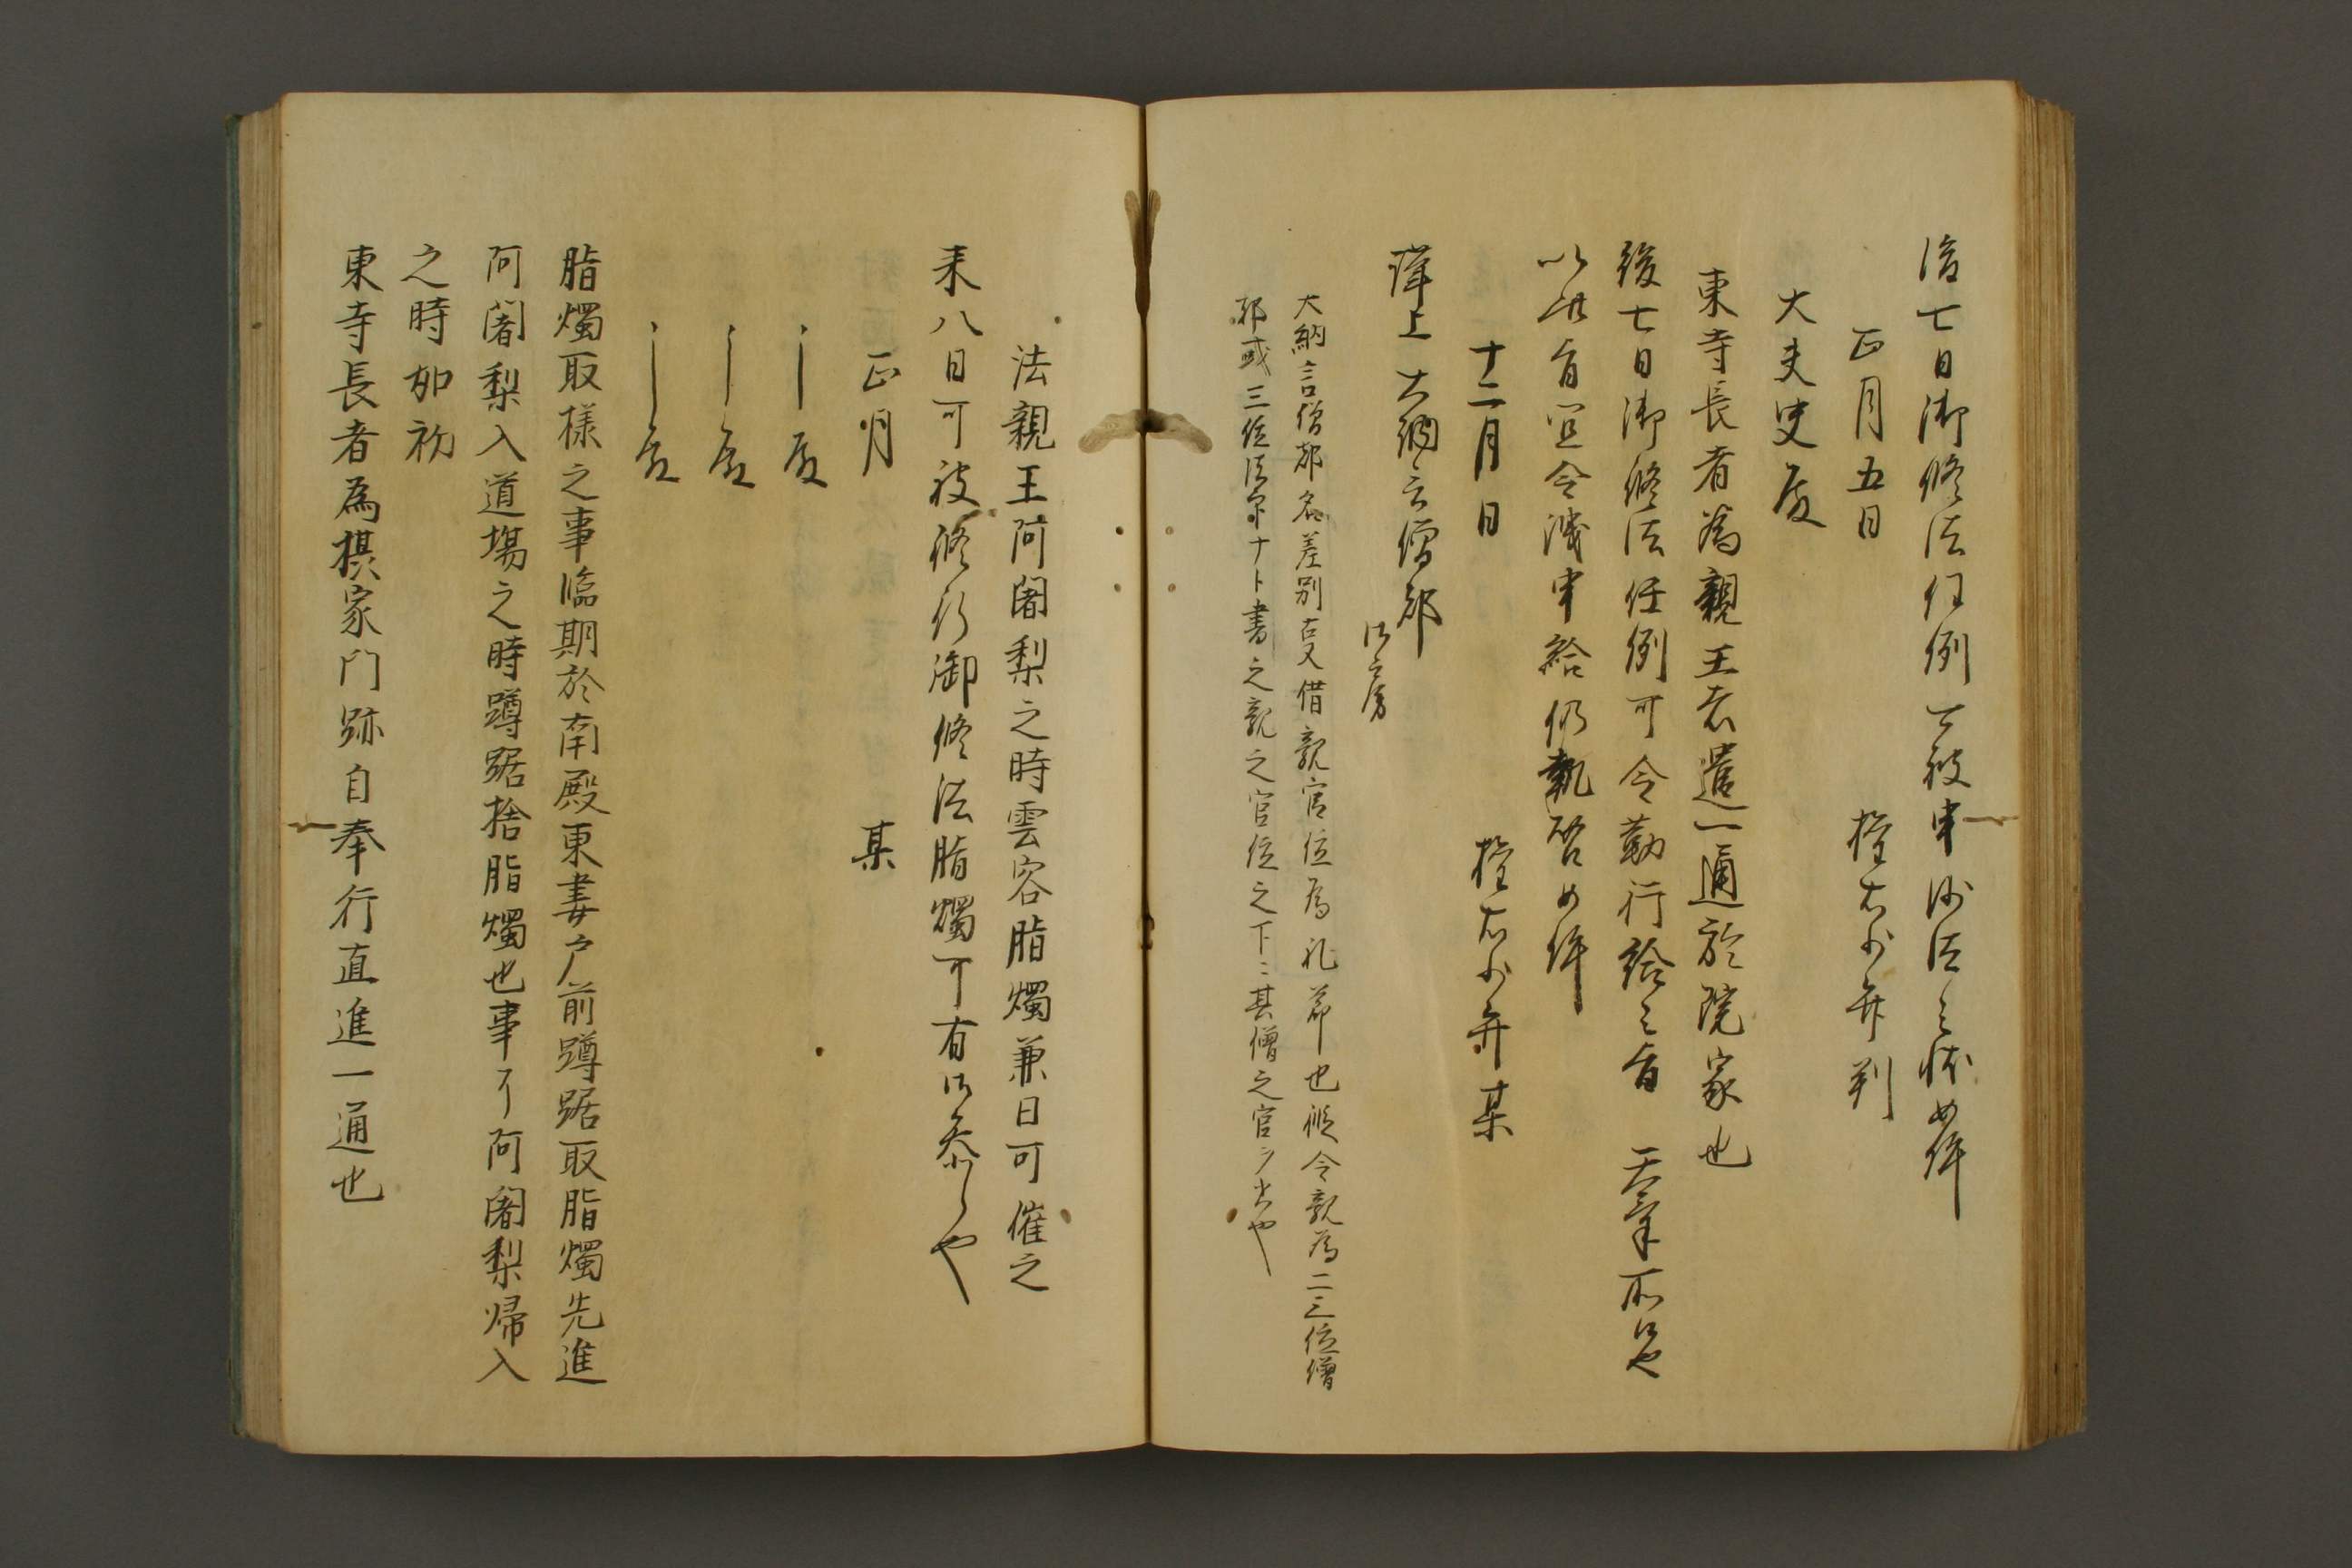 後七日御修法任例可被申沙汰之状如件
正月五日　　　權右少弁判
大夫史殿
東寺長者為親王者遣一通於院家也
後七日御修法任例可令勤行給之旨　天氣所候也
以此旨宜令洩申給仍執啓如件
十二月日　　　權右少弁某
謹上　大納言僧都
御房
大納言僧都名差別古又借親官位為礼節也縦令親為二三位僧
都或三位法印ナト書之親之官位之下ニ其僧之官ヲ書也
法親王阿闍梨之時雲客脂燭兼日可催之
来八日可被修行御修法脂燭可有御参之也
正月　　　某
〻｜殿
〻｜殿
〻｜殿
脂燭取様之事臨期於南殿東妻戸前蹲踞取脂燭先進
阿闍梨入道場之時蹲踞捨脂燭也事了阿闍梨帰入
之時如初
東寺長者為摂家門跡自奉行直進一通也